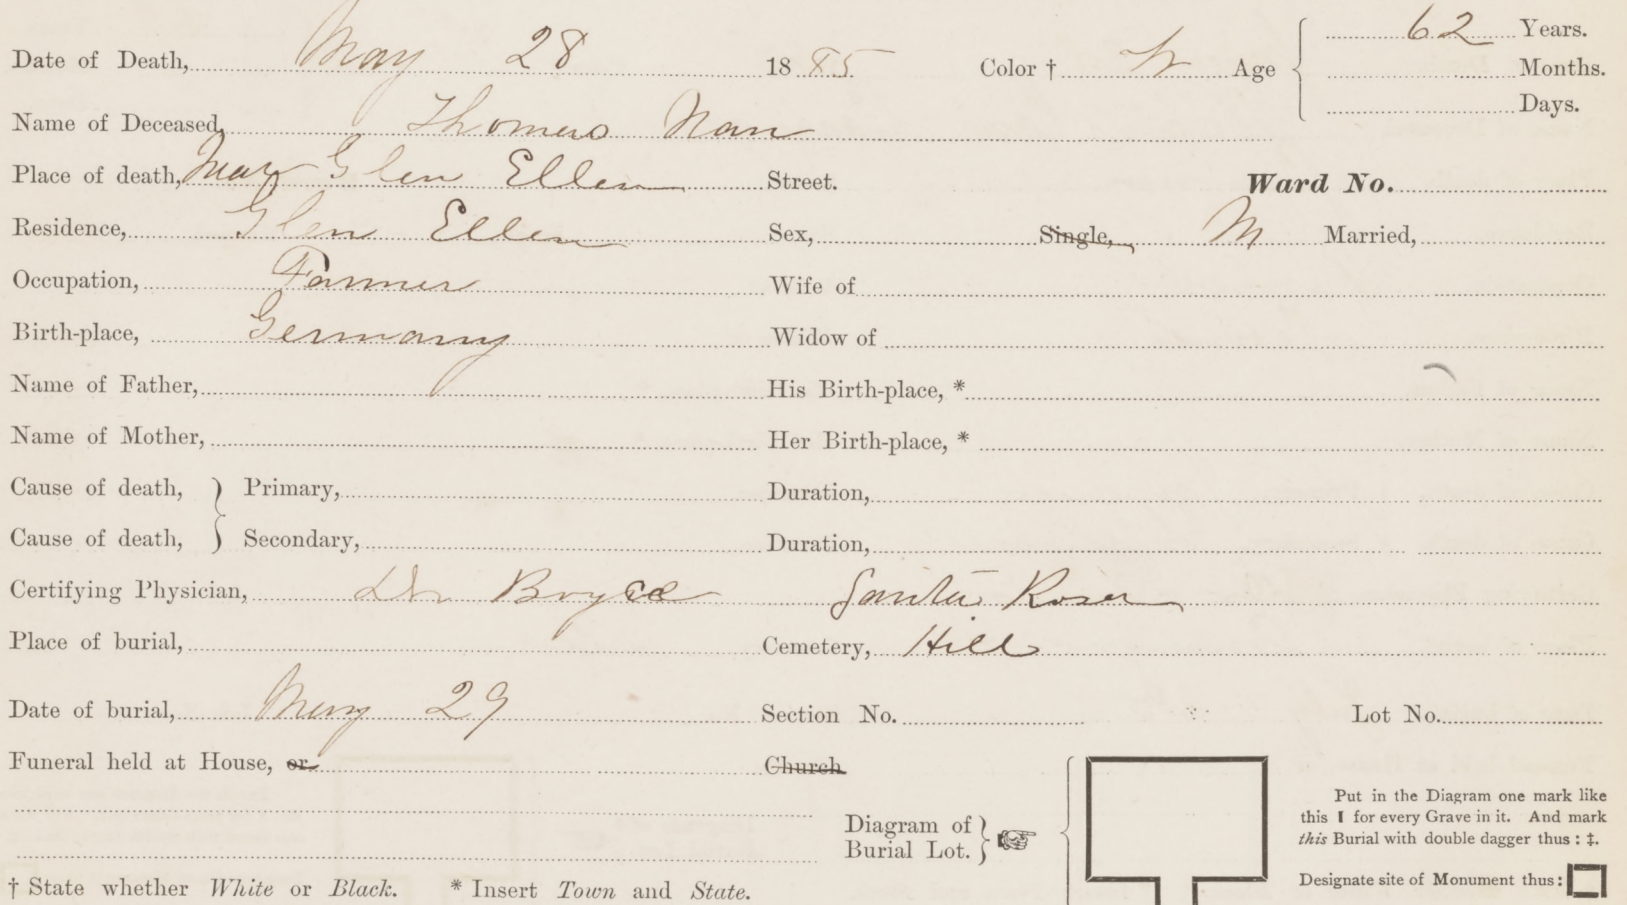 Date of Death, May 28 1885 Color † W Age 62 Years.
Months.
Days.
Name of Deceased, Thomas Nan
Place of death, Near Glen Ellen Street. Ward No.
Residence, Glen Ellen Sex, Single, M Married,
Occupation, Farmer Wife of
Birth-place, Germany Widow of
Name of Father, His Birth-place, *
Name of Mother, Her Birth-place, *
Cause of death, } Primary, Duration,
Cause of death, } Secondary, Duration,
Certifying Physician, Dr Boyce Santa Rosa
Place of burial, Cemetery, Hill
Date of burial, May 29 Section No. Lot No.
Funeral held at House, or Church
Diagram of
Burial Lot. }
Put in the Diagram one mark like
this I for every Grave in it. And mark
this Burial with double dagger thus : ‡.
Designate site of Monument thus :
† State whether White or Black. * Insert Town and State.